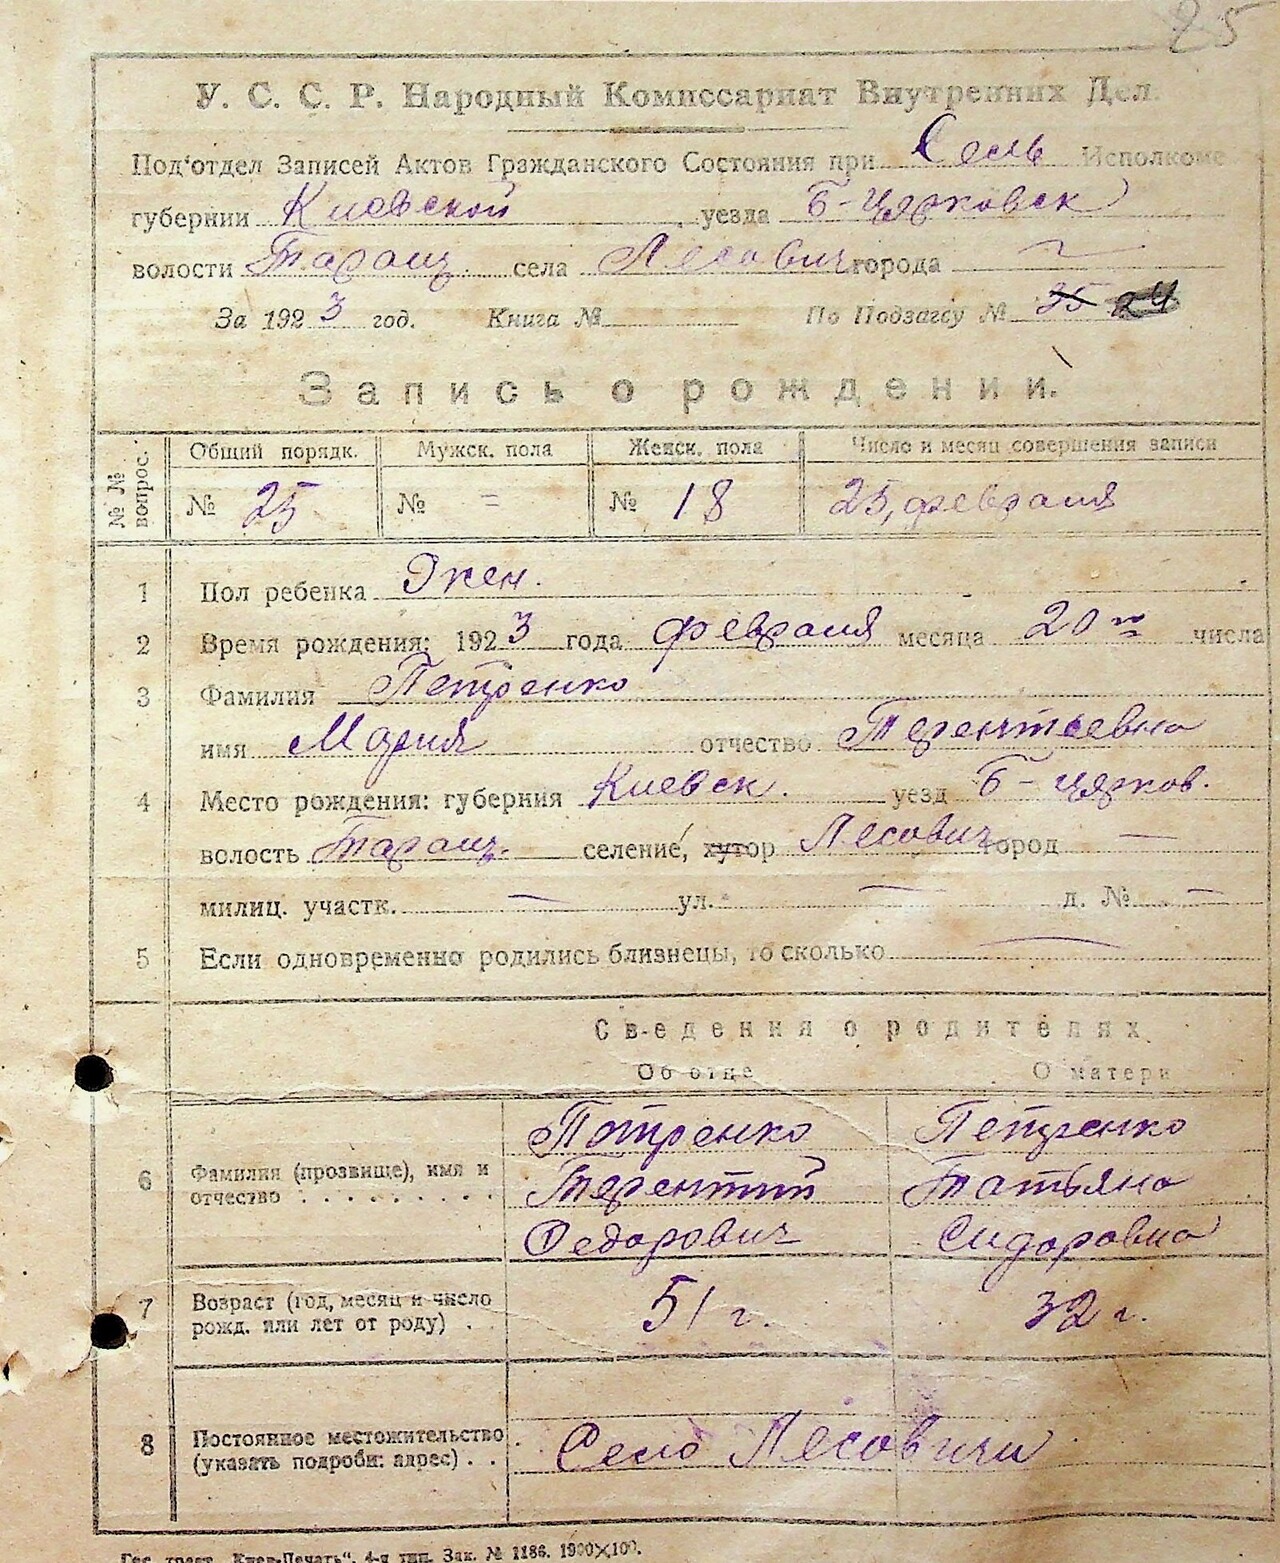 25
У. С. С. Р. Народный Комиссариат Внутренних Дел.
Под'отдел Записей Актов Гражданского Состояния при Сель Исполкоме
губернии Киевской уезда Б-Церковск
волости Таращ. села Лесович города —
За 1923 год. Книга № По Подзагсу № 35 24
Запись о рождении.
№ № вопрос. Общий порядк. Мужск. пола Женск. пола Число и месяц совершения записи
№ 25 № = № 18 25, февраля
1 Пол ребенка Жен.
2 Время рождения: 1923 года февраля месяца 20 го числа
3 Фамилия Петренко
имя Мария отчество Терентьевна
4 Место рождения: губерния Киевск. уезд Б-Церков.
волость Таращ. селение, хутор Лесович город —
милиц. участк. — ул. — д. № —
5 Если одновременно родились близнецы, то сколько —
Сведения о родителях
Об отце О матери
Петренко Петренко
6 Фамилия (прозвище), имя и Терентий Татьяна
отчество . . . . . . . . . . Федорович Сидоровна
7 Возраст (год, месяц и число 51 г. 32 г.
рожд. или лет от роду) . .
8 Постоянное местожительство Село Лесовичи
(указать подробн: адрес) . .
Гос. трест „Киев-Печать“, 4-я тип. Зак. № 1186. 1900×100.